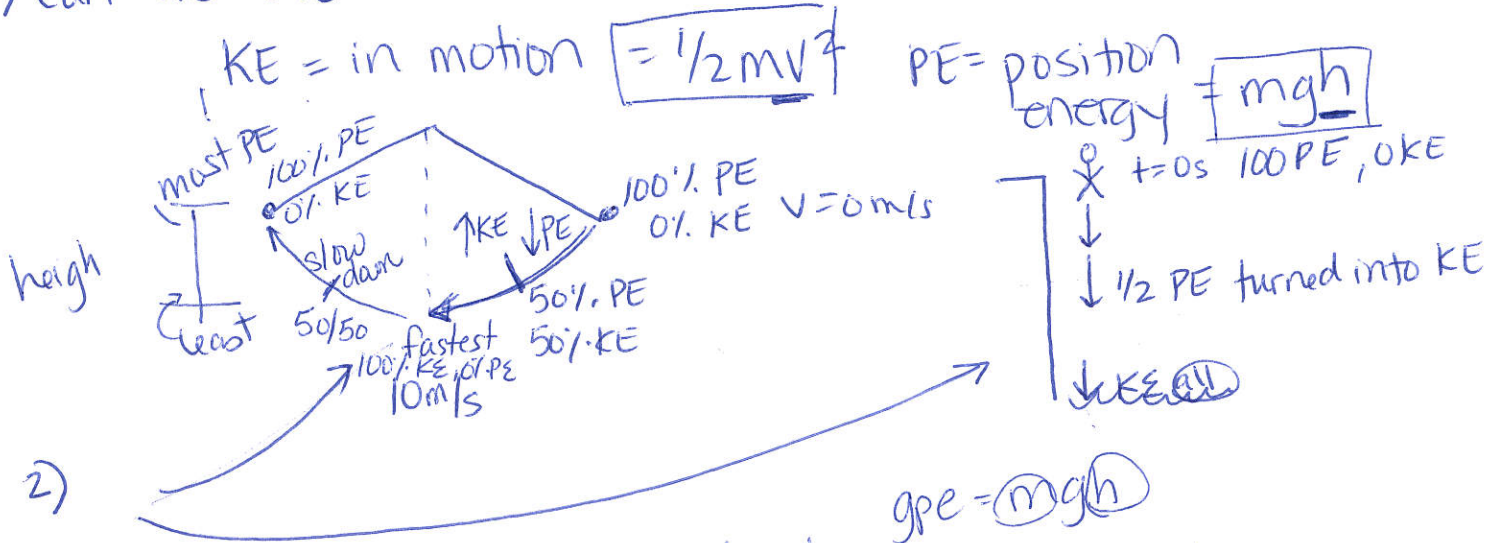 KE = in motion = 1/2mv²
PE= position energy = mgh
most PE
100% PE
0% KE
100% PE
0% KE V=0m/s
↑KE ↓PE
slow down
50/50
50% PE
50% KE
fastest
100% KE, 0% PE
10m/s
heigh
least
t=0s 100PE, 0KE
1/2 PE turned into KE
KE all
2)
gpe = mgh